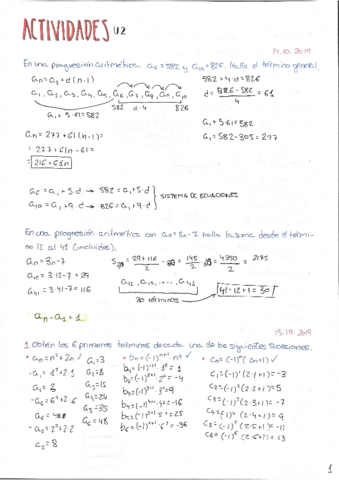 ACTIVIDADES U2
14.10.2019
En una progresión aritmética a₆=582 y a₁₀=826. Halla el término general.
an=a₁+d(n-1)
a₁, a₂, a₃, a₄, a₅, a₆, a₇, a₈, a₉, a₁₀
582 d·4 826
a₁+5·61=582
582+4·d=826
d= 826-582 / 4 =61
a₁+5·61=582
a₁=582-305=277
an=277+61(n-1)=
=277+61n-61=
=216+61n
a₆=a₁+5·d → 582=a₁+5·d
a₁₀=a₁+9·d → 826=a₁+9·d
SISTEMA DE ECUACIONES
En una progresión aritmética con an=3n-7 halla la suma desde el térmi-
no 12 al 41 (incluidos).
an=3n-7
a₁₂=3·12-7=29
a₄₁=3·41-7=116
29+116 / 2 · = 145 / 2 · = 4350 / 2 = 2175
a₁₂, a₁₃, ..., a₄₁
30 términos
41-12+1=30
an-a₁+1
15.10.2019
1. Obtén los 6 primeros términos de cada una de las siguientes sucesiones.
• an=n²+2n ✓
a₁=3
a₂=8
a₃=15
a₄=24
a₅=35
a₆=48
-a₁=1²+2·1
a₁=3
-a₆=6²+2·6
a₆=48
-a₂=2²+2·2
a₂=8
• bn=(-1)ⁿ⁺¹ n² ✓
b₁=(-1)¹⁺¹·1²=1
b₂=(-1)²⁺¹·2²=-4
b₃=(-1)³⁺¹·3²=9
b₄=(-1)⁴⁺¹·4²=-16
b₅=(-1)⁵⁺¹·5²=25
b₆=(-1)⁶⁺¹·6²=-36
• cn=(-1)ⁿ(2n+1) ✓
c₁=(-1)¹(2·1+1)=-3
c₂=(-1)²(2·2+1)=5
c₃=(-1)³(2·3+1)=-7
c₄=(-1)⁴(2·4+1)=9
c₅=(-1)⁵(2·5+1)=-11
1